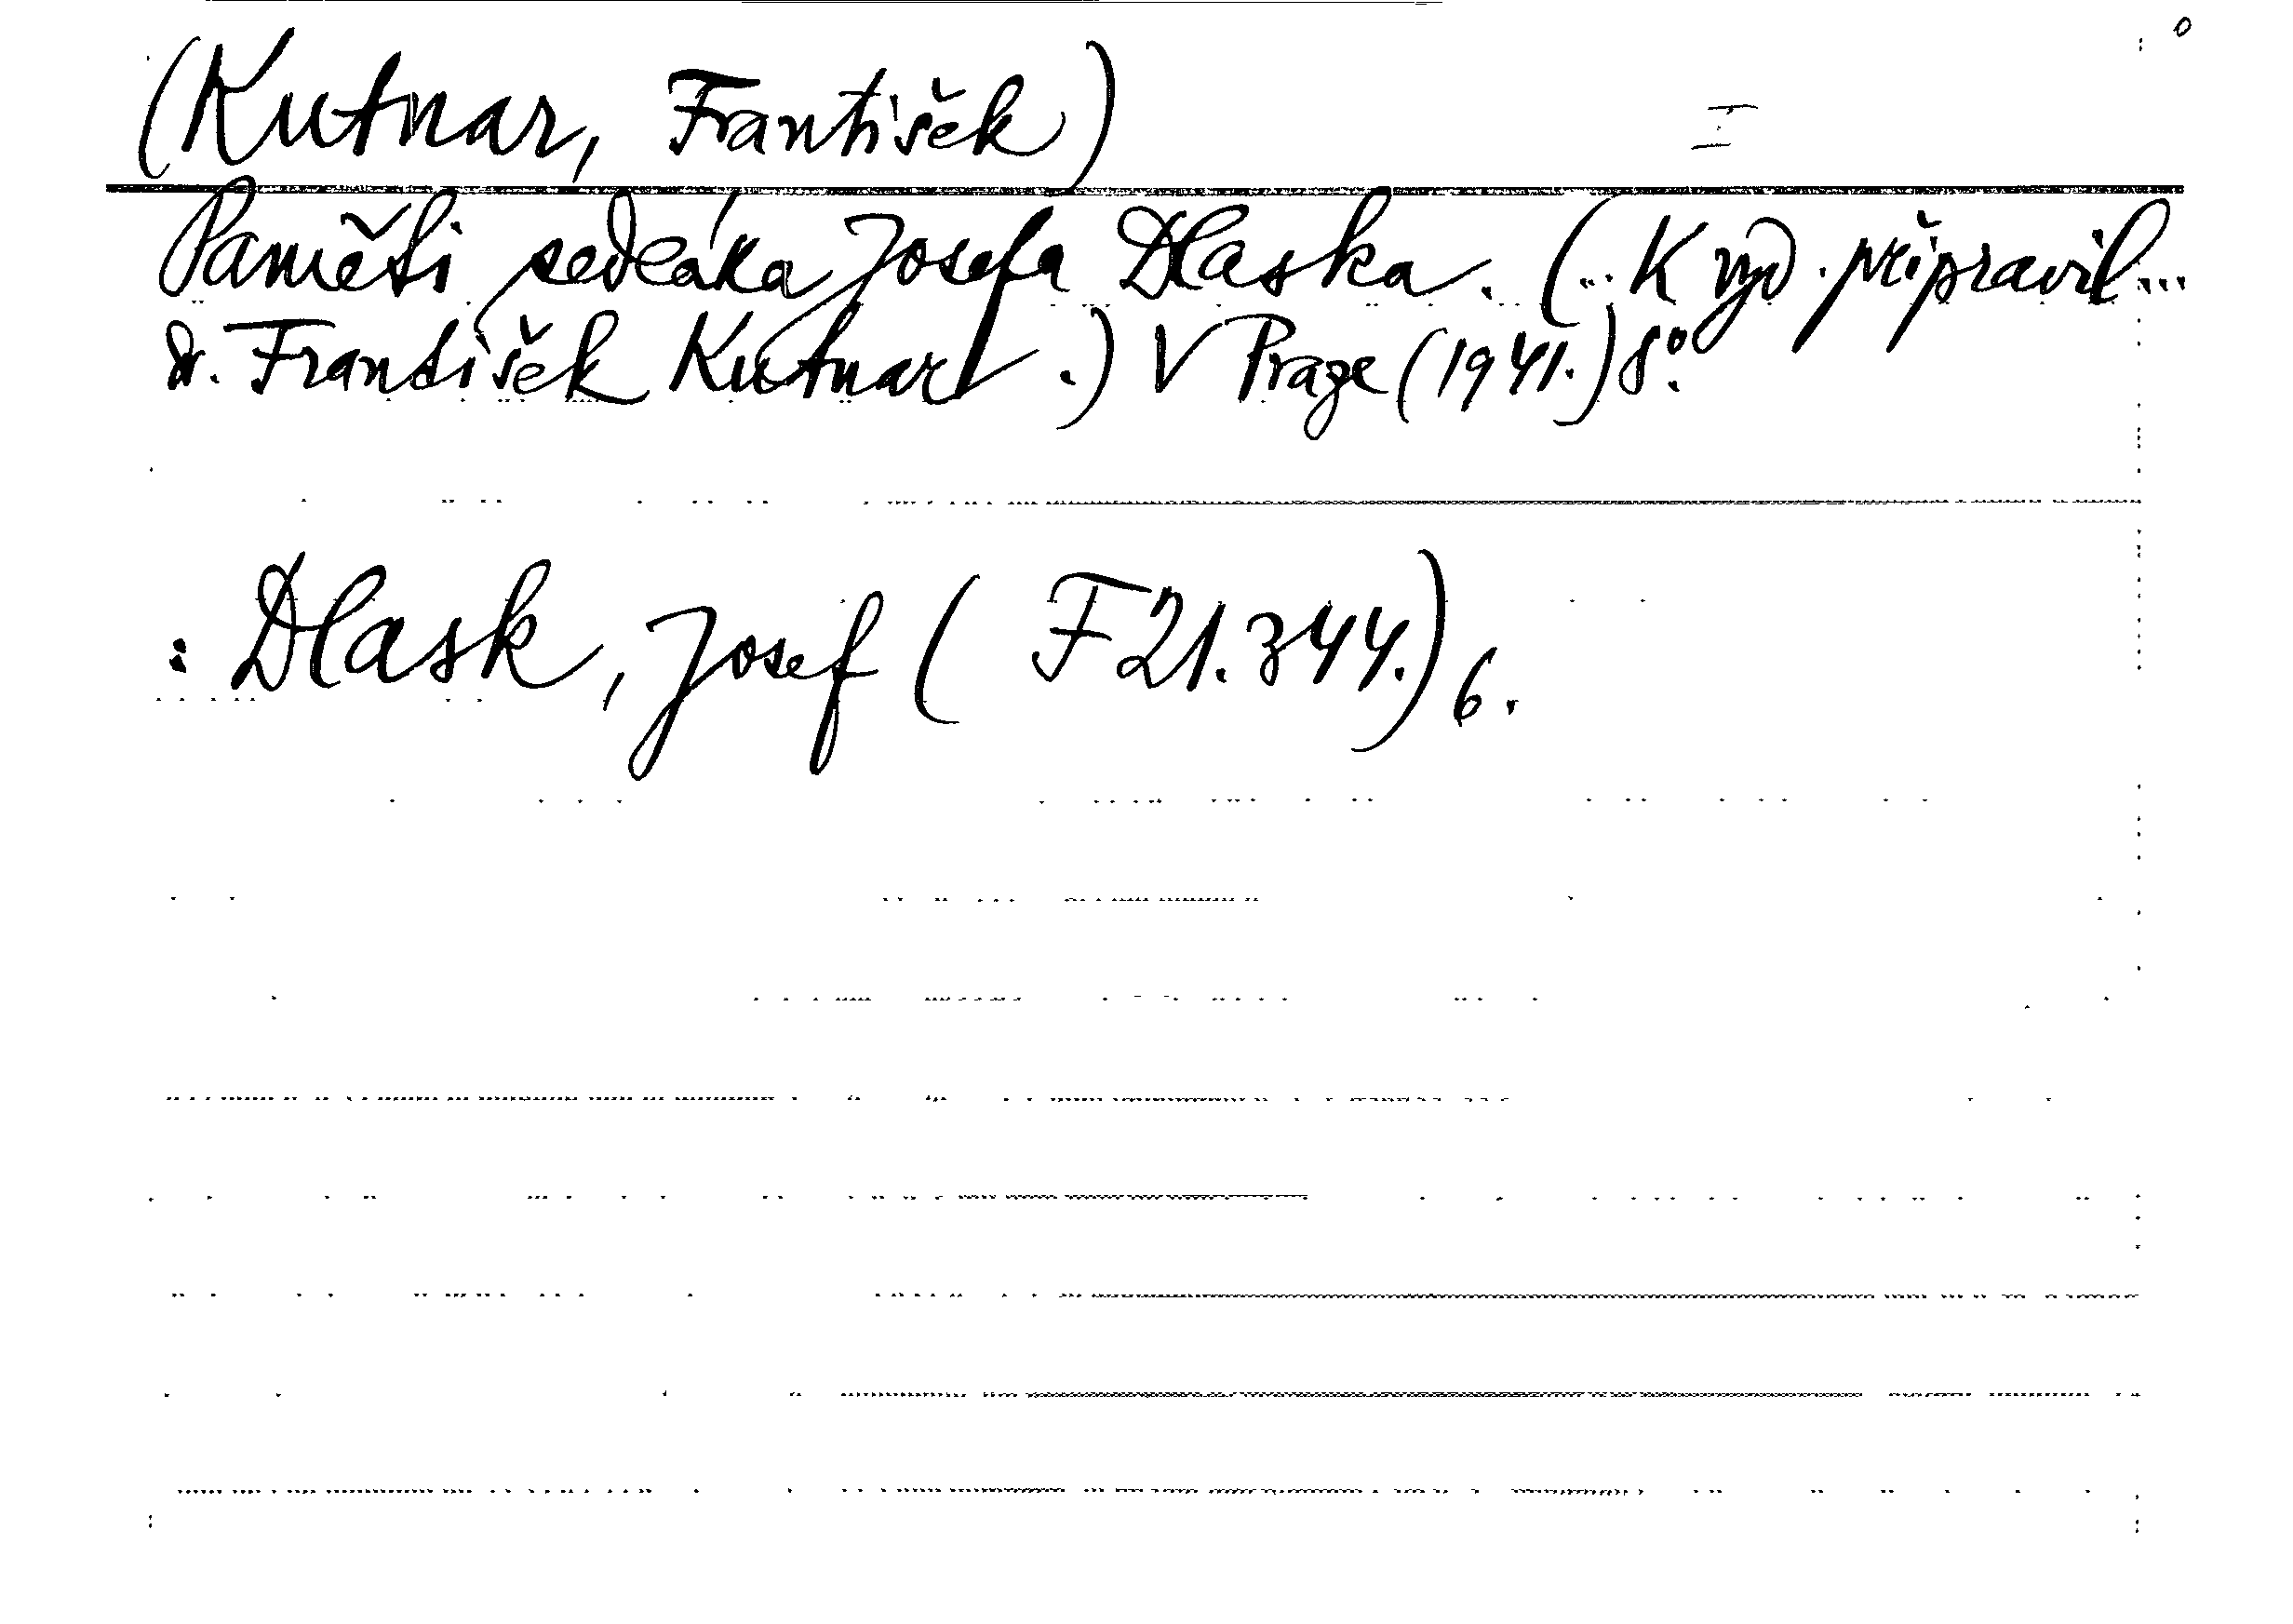 (Kutnar, František) I
Paměti sedláka Josefa Dlaska. (... K vyd. připravil ...
dr. František Kutnar.) V Praze (1941.) 8°.
: Dlask, Josef ( F 21.344.) 6.